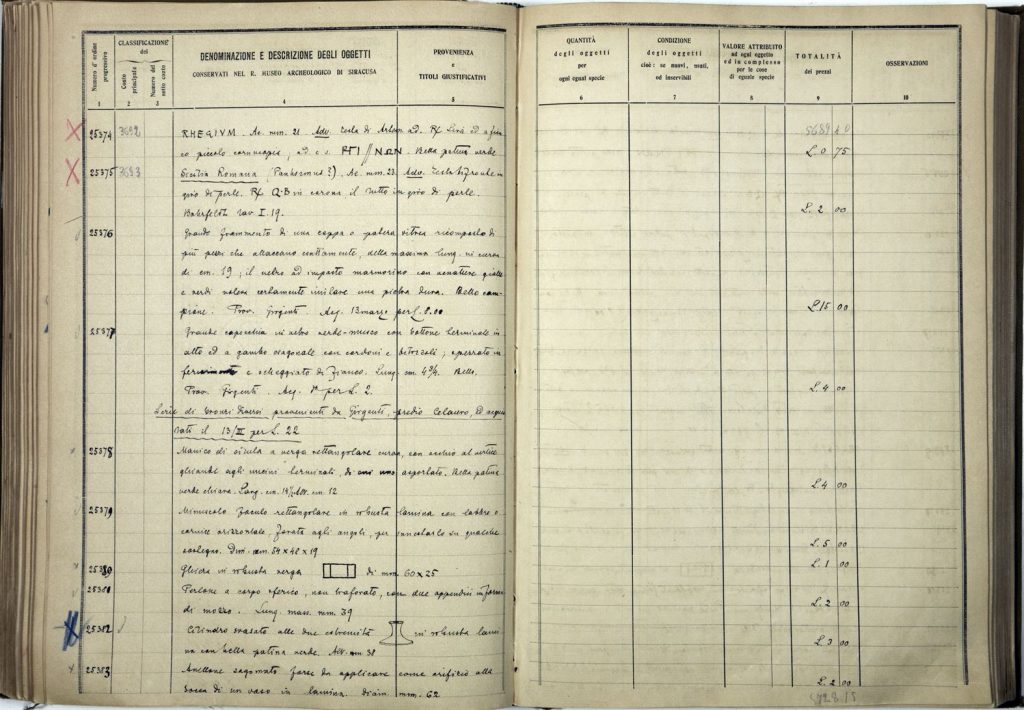 Numero d'ordine progressivo
CLASSIFICAZIONE dei
Costo principale
Numero del sotto costo
DENOMINAZIONE E DESCRIZIONE DEGLI OGGETTI
CONSERVATI NEL R. MUSEO ARCHEOLOGICO DI SIRACUSA
PROVENIENZA
e
TITOLI GIUSTIFICATIVI
1 2 3 4 5
25374 3692 RHEGIVM. Ae. mm. 21. Adv. testa di ad. R/ Lira ed a
co piccolo cornucopia, ad e. s. ΝΩΝ. Bella patina verde
25375 3693 Sicilia Romana (Panhormus?). Ae. mm. 23. Adv. testa bifronte in
giro di perle. R/ Q-B in corona, il tutto in giro di perle.
Bahrfeldt tav I. 19.
25376 Grande frammento di una coppa o patera vitrea ricomposto di
più pezzi che attaccano, della massima lung. in curva
di cm. 19; il vetro ad impasto marmorino con venature gialle
e verdi voleva certamente imitare una pietra dura. Bello cam-
pione. Prov. Girgenti. Acq. 13 marzo per L. 8.00
25377 Grande capocchia in vetro verde-musco con bottone terminale in
alto ed a gambo esagonale con cordoni e; operato in
e scheggiato di fianco. Lung. cm. 4 3/4. Bello.
Prov. Girgenti. Acq. per L. 2.
Serie di bronzi diversi provenienti da Girgenti, predio Celauro, ed acqui-
stati il 13/III per L. 22
25378 Manico di situla a verga rettangolare curva, con occhio al vertice
ghiande agli uncini terminali, di cui uno asportato. Bella patina
verde chiara. Lung. cm. 14 1/2 Alt. cm. 12
25379 Minuscolo rettangolare in robusta lamina con labbro o
cornice orizzontale, forata agli angoli, per su qualche
sostegno. Dim. mm. 54 x 48 x 19
25380 Ghiera in robusta verga di mm. 60 x 25
25381 a corpo sferico, non traforato, con due appendici in forma
di mozzo. Lung. mass. mm. 39
25382 Cilindro svasato alle due estremità in robusta lami-
na con bella patina verde. Alt. mm 38
25383 Anellone sagomato forse da applicare come orificio alla
bocca di un vaso in lamina. diam. mm. 62
QUANTITÀ
degli oggetti
per
ogni egual specie
CONDIZIONE
degli oggetti
cioè: se nuovi, usati,
od inservibili
VALORE ATTRIBUITO
ad ogni oggetto
ed in complesso
per le cose
di eguale specie
TOTALITÀ
dei prezzi
OSSERVAZIONI
6 7 8 9 10
5689 40
L. 0 75
L. 2 00
L. 15 00
L. 4 00
L. 4 00
L. 5 00
L. 1 00
L. 2 00
L. 3 00
L. 2 00